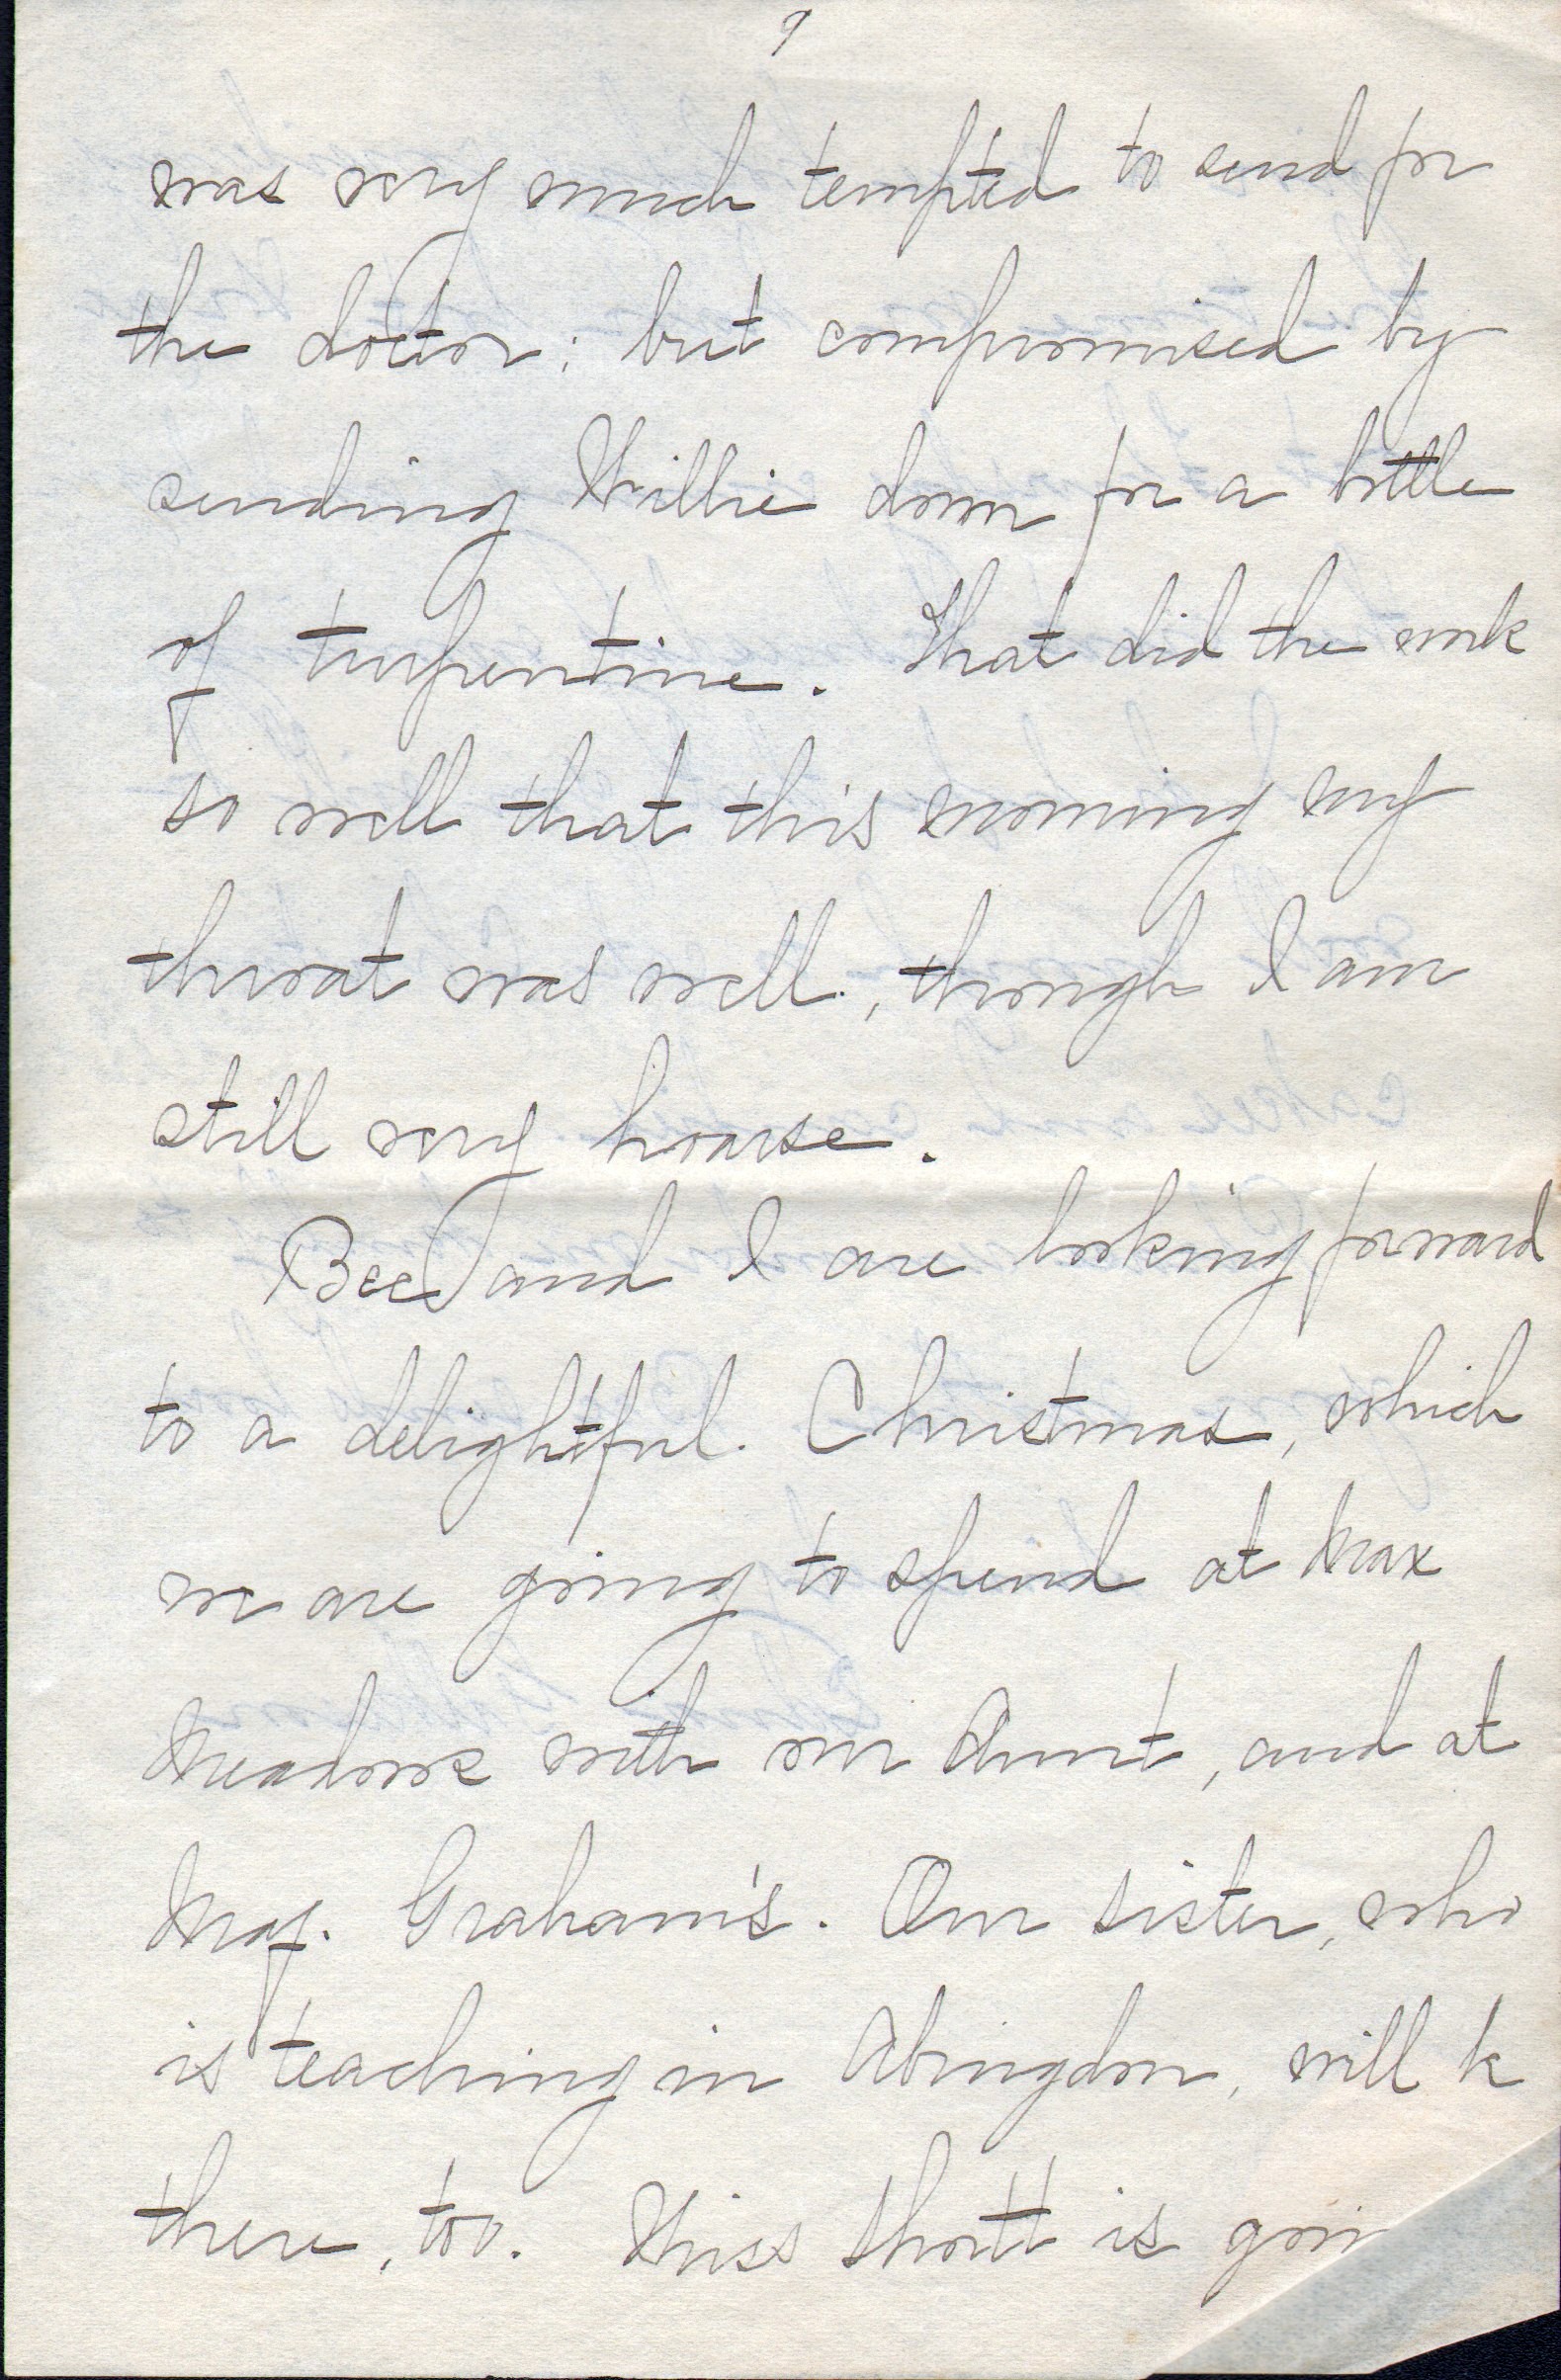 9
was very much tempted to send for
the doctor; but compromised by
sending Willie down for a bottle
of turpentine. That did the work
so well that this morning my
throat was well, though I am
still very hoarse.
Bec and I are looking forward
to a delightful Christmas, which
we are going to spend at Max
Meadows with our Aunt, and at
Maj. Graham's. Our sister, who
is teaching in Abingdon, will be
there, too. Miss Shott is goin